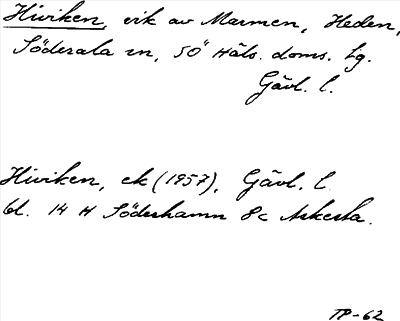 Hiviken, vik av Marmen, Heden,
Söderala sn, SÖ Häls. doms. lg.
Gävl. l.
Hiviken, ek (1957), Gävl. l.
bl. 14 H Söderhamn 8c Askesta.
TP-62